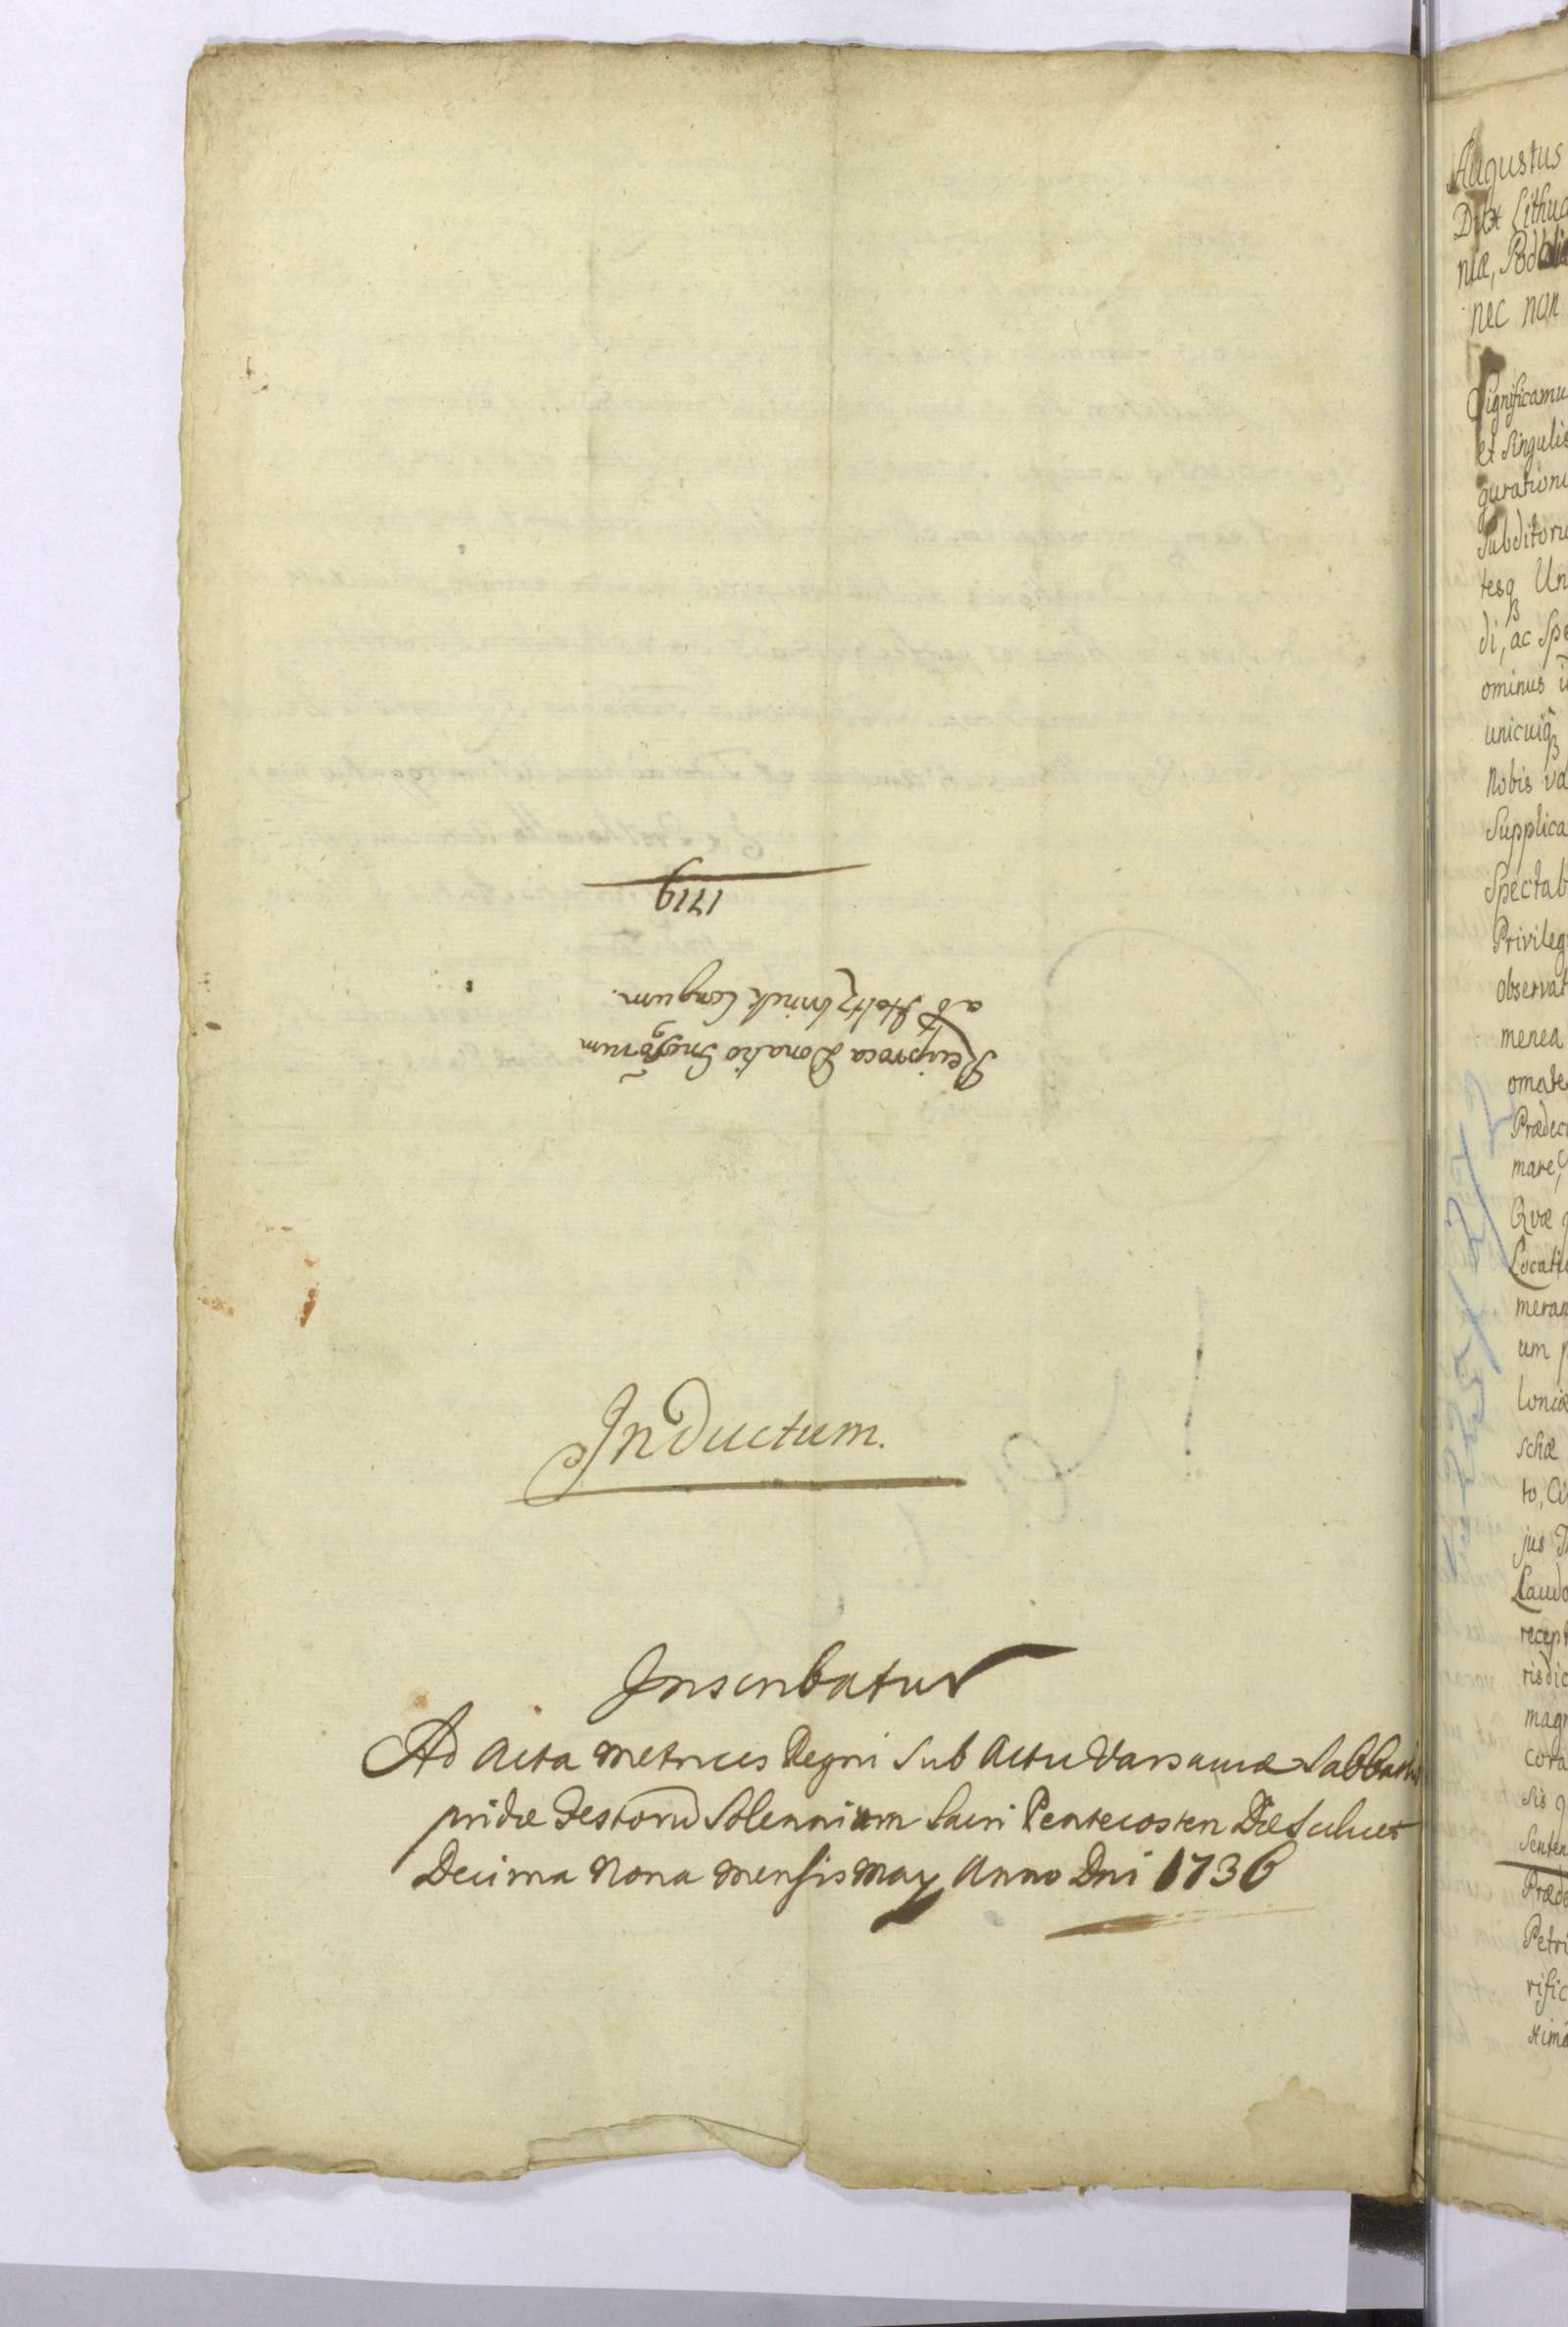 1719
Reciproca Donatio Gnosorum
ab Holtzbrinck Conjgum.
Inductum.
Inscribatur
Ad Acta Metrices Regni Sub Actu Varsaviæ Sabbatho
pridie Festorū Solennium Sacri Pentecosten Die scilicet
Decima Nona Mensis May Anno Dni 1736
Augustus
Dux Lithua
niæ, Podolia
nec non
Significamu
et Singulis
guration
Subditoru
tesq Un
di, ac Spe
ominus i
unicuiq
Nobis va
Supplica
Spectab
Privileg
observat
menea
omate
Prædec
mare,
Qvæ q
Locati
meran
um p
loniæ
schæ
to, Ci
jus T
Laudo
recept
risdic
magn
cora
sis q
Senten
Præde
Petri
rific
ximo